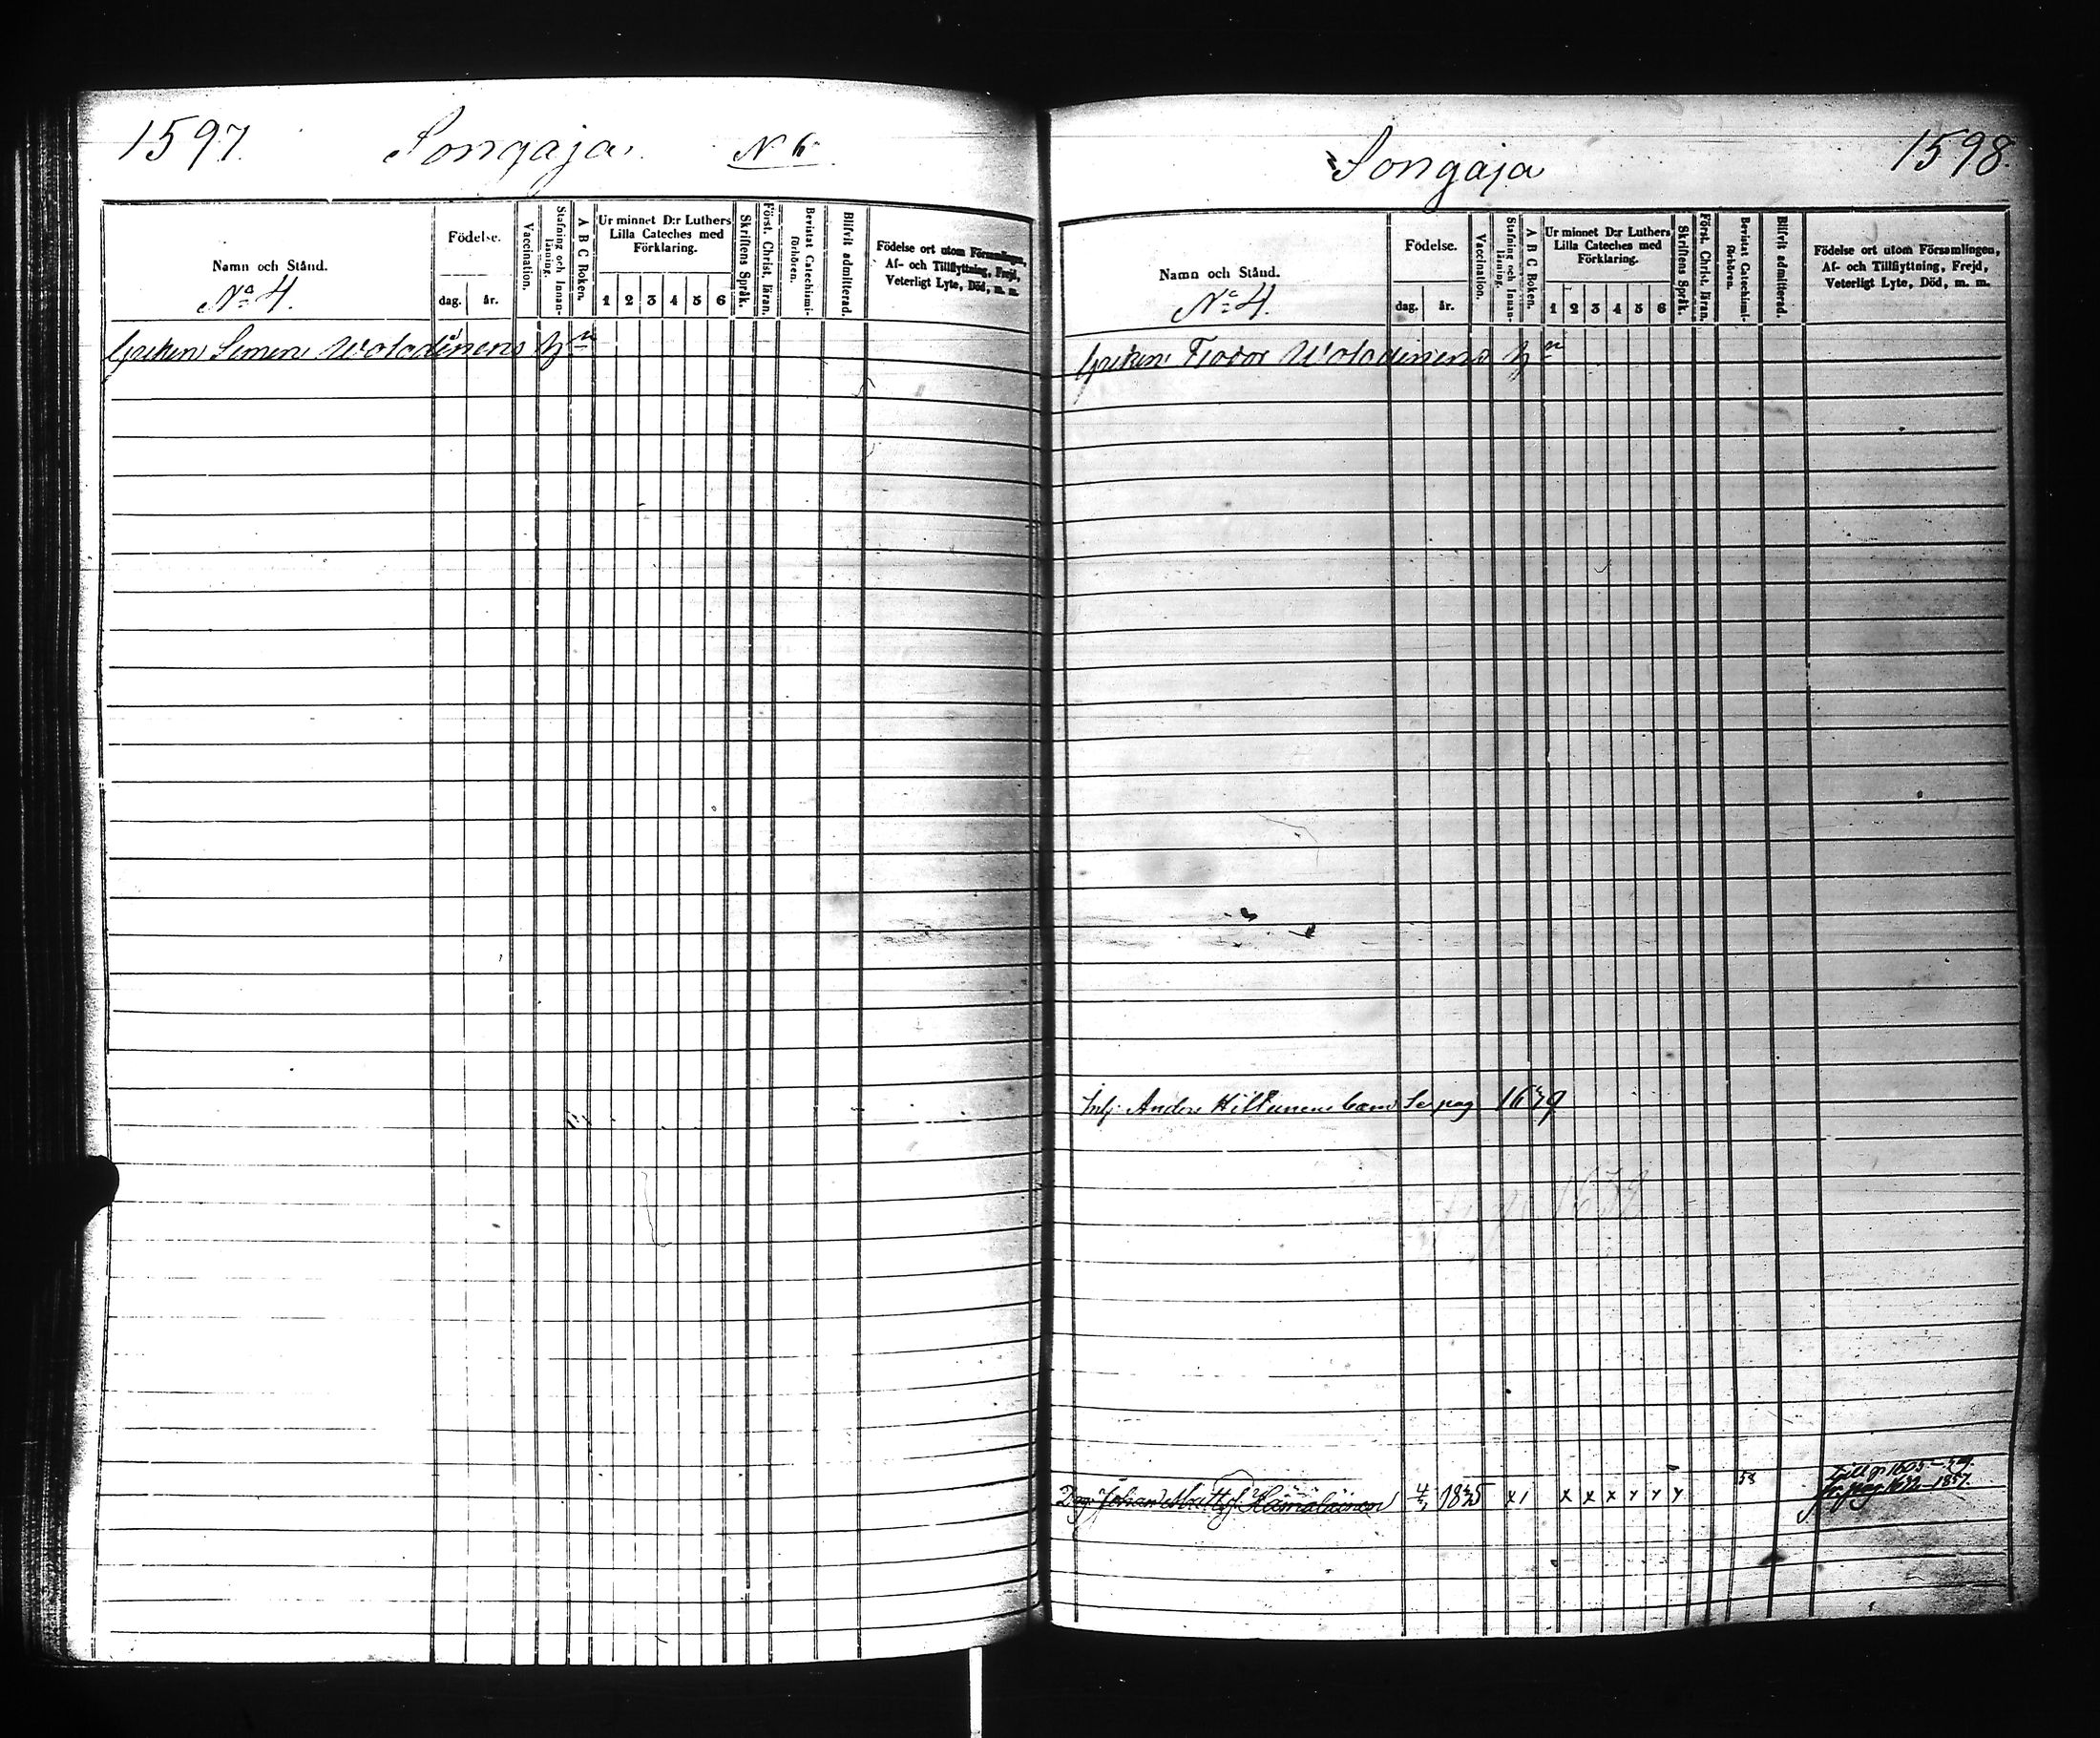 1597.
Songaja.
N 6
Namn och Stånd.
No 4.
Födelse.
dag.
år.
Vaccination.
Stafning och Innan-
läsning.
A B C Boken.
Ur minnet D:r Luthers
Lilla Cateches med
Förklaring.
1 2 3 4 5 6
Skriftens Språk.
Först. Christ. läran.
Bevistat Catechismi-
förhören.
Blifvit admitterad.
Födelse ort utom Församlingen,
Af- och Tillflyttning, Frejd,
Veterligt Lyte, Död, m. m.
Greken Simen Woladinens
Songaja
1598.
Namn och Stånd.
No 4.
Födelse.
dag.
år.
Vaccination.
Stafning och Innan-
läsning.
A B C Boken.
Ur minnet D:r Luthers
Lilla Cateches med
Förklaring.
1 2 3 4 5 6
Skriftens Språk.
Först. Christ. läran.
Bevistat Catechismi-
förhören.
Blifvit admitterad.
Födelse ort utom Församlingen,
Af- och Tillflyttning, Frejd,
Veterligt Lyte, Död, m. m.
Greken Feodor Woladinens
Inh: Anders Hiltunens barn Se pag
Johan Mattsf. Hämäläinen
58